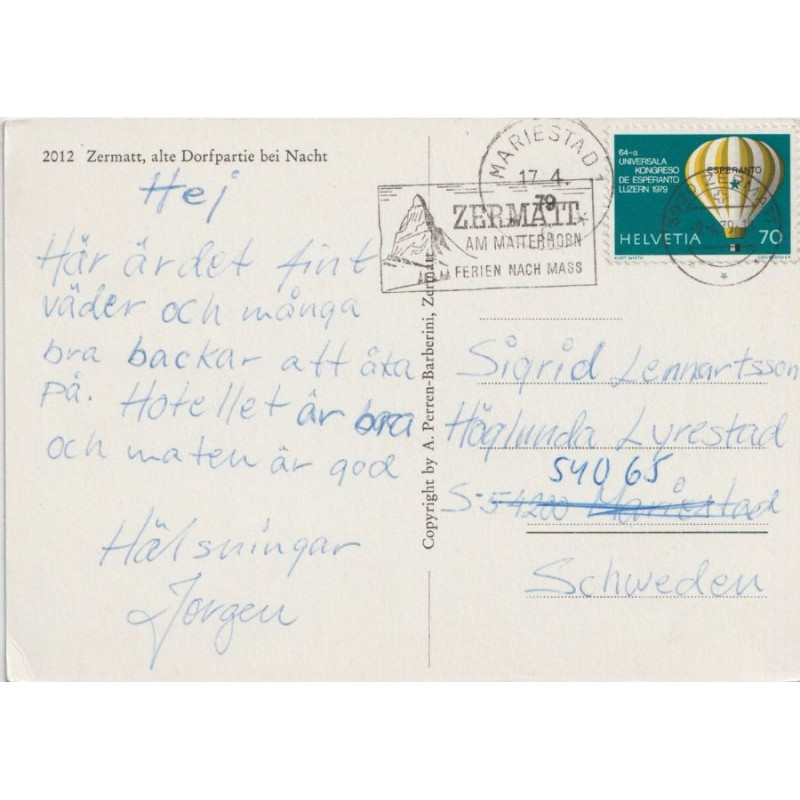 2012 Zermatt, alte Dorfpartie bei Nacht
Hej
Här är det fint
väder och många
bra backar att åka
på. Hotellet är bra
och maten är god
Hälsningar
Jörgen
Copyright by A. Perren-Barberini, Zermatt
MARIESTAD 1
17.4.
79
ZERMATT
AM MATTERHORN
FERIEN NACH MASS
64-a
UNIVERSALA
KONGRESO
DE ESPERANTO
LUZERN 1979
ESPERANTO
HELVETIA 70
KURT WIRTH
COURVOISIER
Sigrid Lennartsson
Höglunda Lyrestad
540 65
S-54200 Mariestad
Schweden